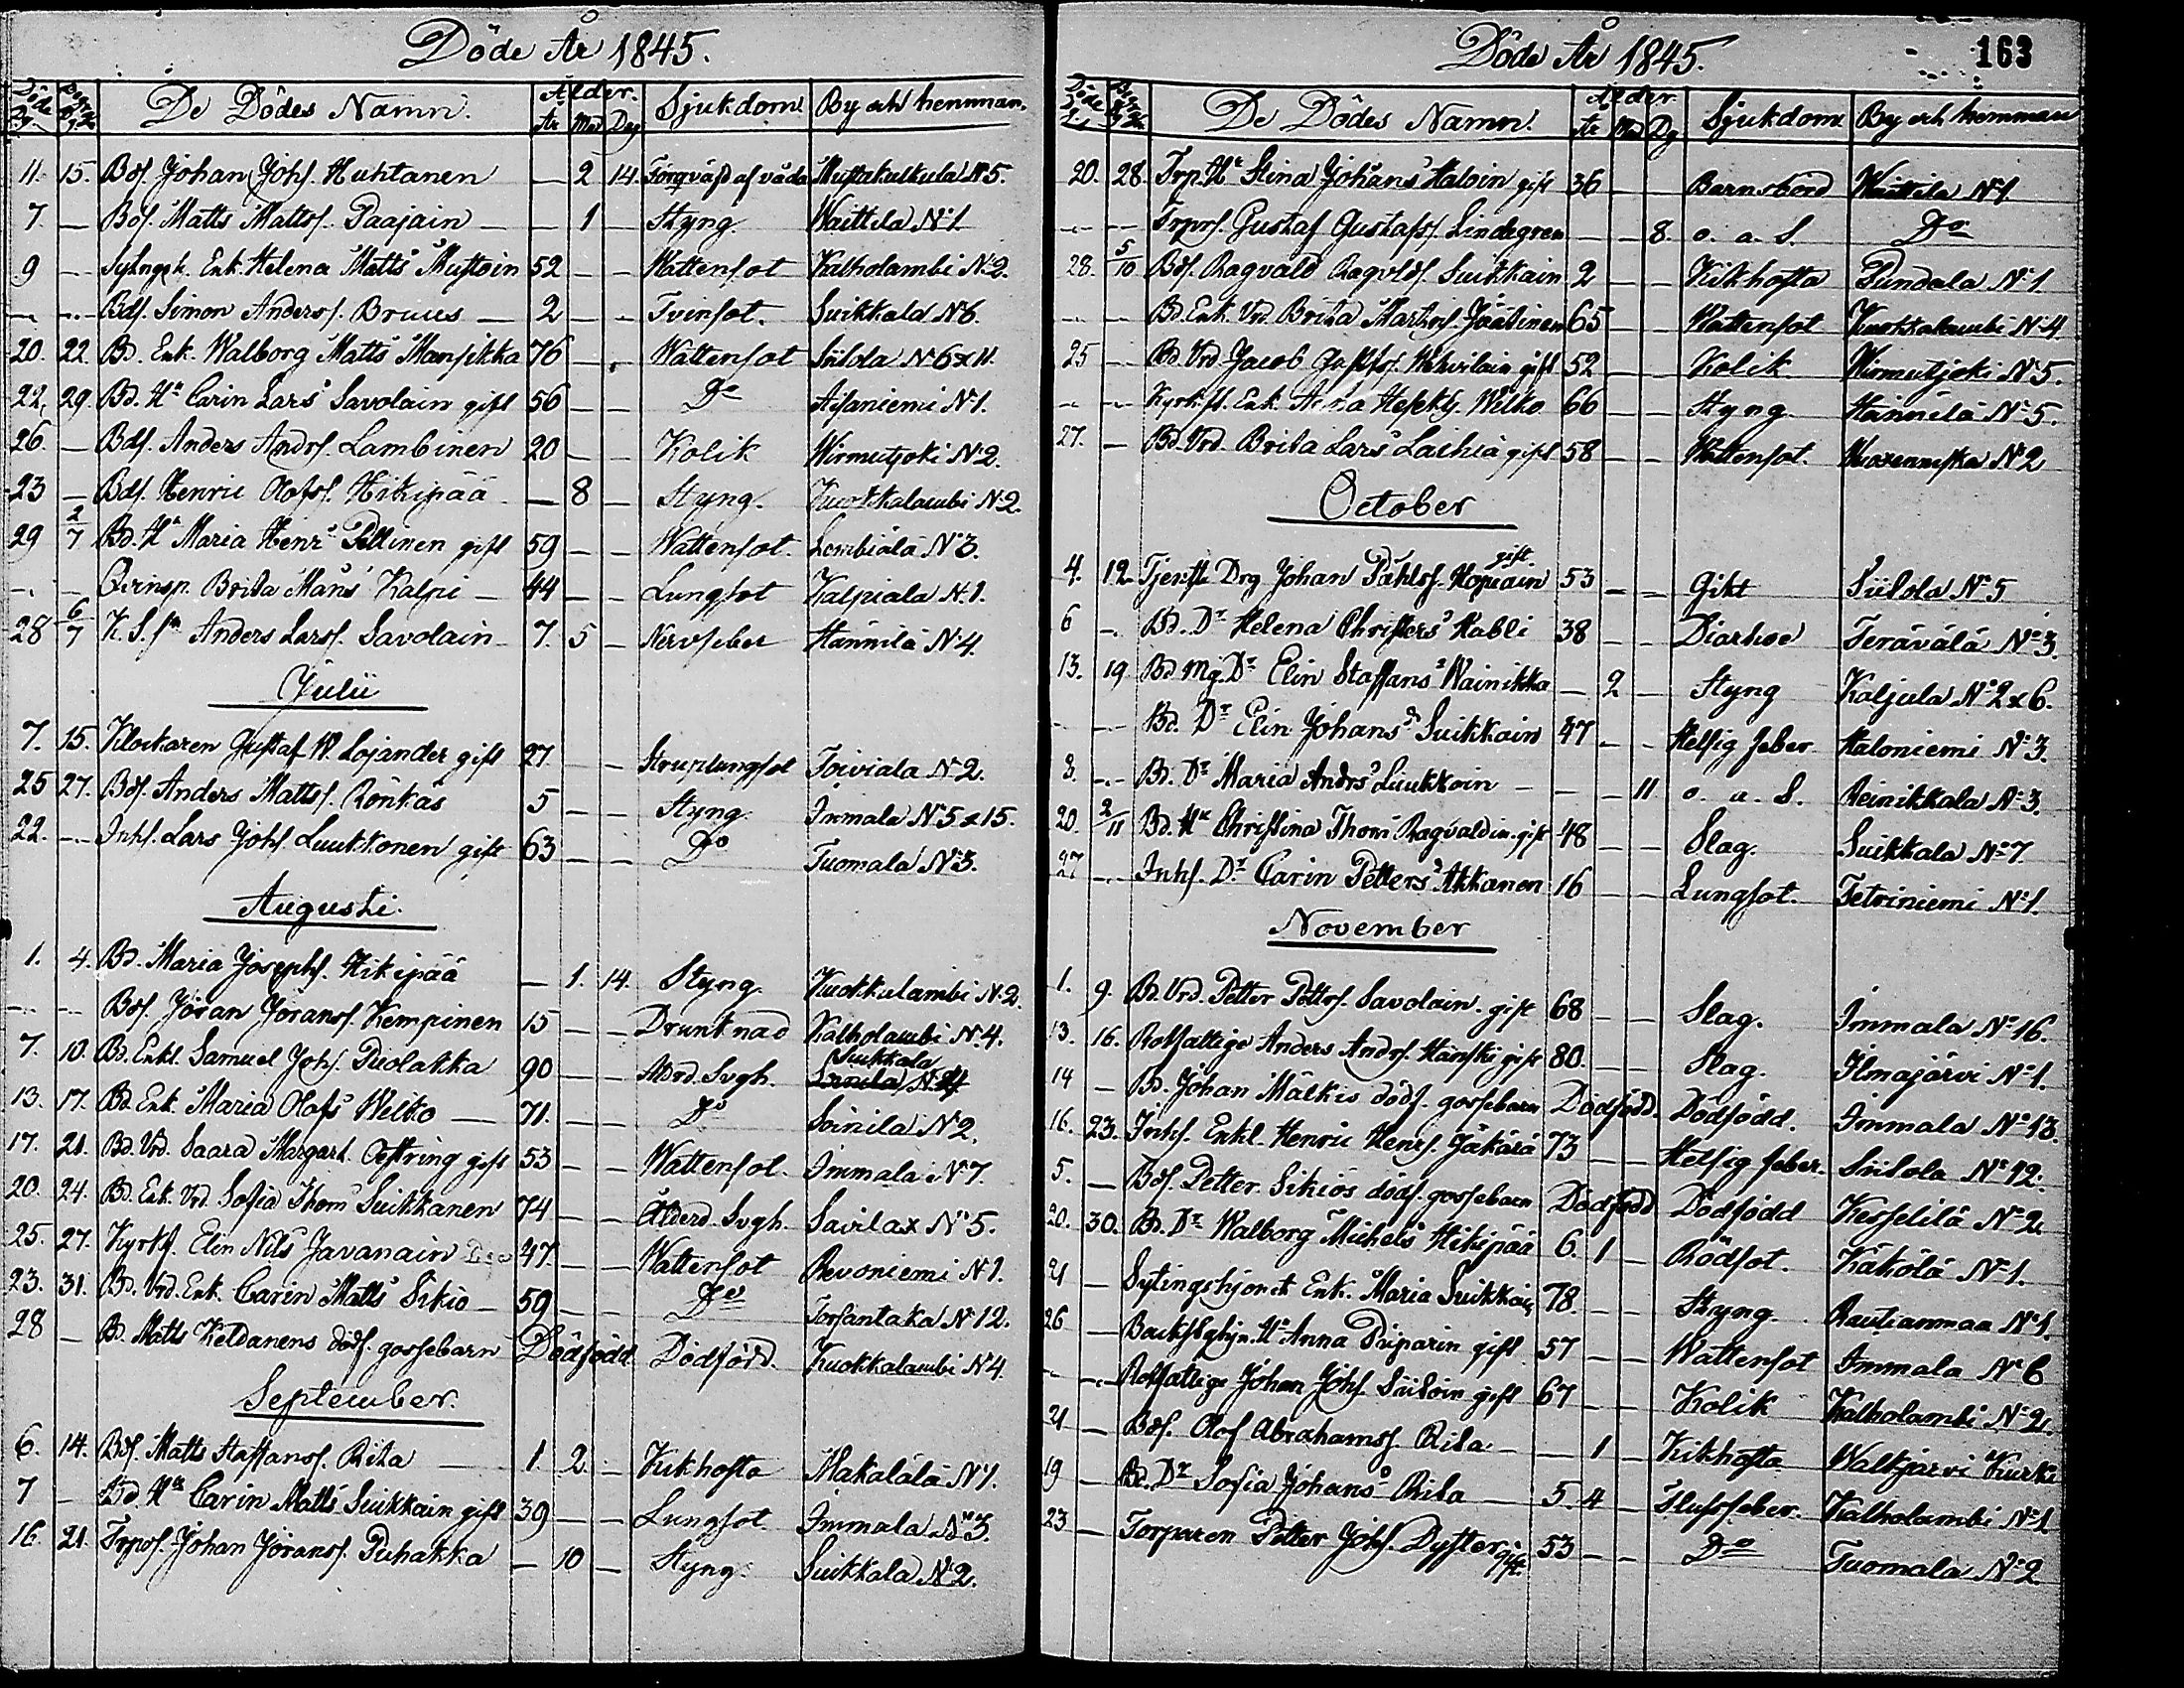 Döde År 1845.
Döde Dg. Begrafn Dg De Dödes Namn. Ålder. År Mad Dag Sjukdom By och hemman.
11. 15. Bds. Johan Johs. Huhtanen — 2 14. Förqväfd af våda Mustakulkula N:5.
7. — Bds. Matts Mattss. Paajain — — 1 — Styng Waittila N:1.
9 — Sytngh. Enk. Helena Matts Mustoin 52 — — Wattensot Kalholambi N:2.
— — Bds. Simon Anderss. Bruus — 2 — — Tvinsot. Suikkala N:6.
20. 22. Bd. Enk. Walborg Matts Mansikka 76 — — Wattensot Siilola N:6 x 11.
22. 29. Bd. Hu Carin Lars Savolain gift 56 — — Do Aisaniemi N:1.
26. — Bds. Anders Andrs. Lambinen 20 — — Kolik Wirmutjoki N:2.
23 — Bds. Henric Olofss. Hikipää — 8 — Styng. Kuokkalambi N:2.
29 2/7 Bd. Hu Maria Henrs Peltinen gift 59 — — Wattensot. Lembiälä N:3.
— — Qvinsp. Brita Måns Kalpi — 44 — — Lungsot Kalpiala N:1.
28 6/7 K. S. sn Anders Larss. Savolain 7. 5 — Nervfeber Hännilä N:4.
Julii
7. 15. Klockaren Gustaf W. Lojander gift 27 — — Struplungsot Toiviala N:2.
25 27. Bds. Anders Mattss. Rönkäs 5 — — Styng. Immala N:5 x 15.
22. — Inhs. Lars Johs. Luukkonen gift 63 — — Do Tuomala N:3.
Augusti.
1. 4. Bd. Maria Josephs. Hikipää — 1. 14. Styng. Kuokkalambi N:2.
— — Bds. Jöran Jöranss. Kempinen 15 — — Drunknad Kalholambi N:4.
7. 10. Bd. Enkl. Samuel Johs. Puolakka 90 — — Ålderd. Svgh. Suikkala N:4
13. 17. Bd. Enk. Maria Olofs Welko — 71. — — Do Soinila N:2.
17. 21. Bd. Vrd. Saara Margart. Oestring gift 53 — — Wattensot. Immala N:7.
20. 24. Bd. Enk. Vrd. Sofia Thom Suikkanen 74 — — Ålderd. Svgh. Savilax N:5.
25. 27. Kyrkf. Elin Nils Javanain 47. — — Wattensot Revoniemi N:1.
23. 31. Bd. Vrd. Enk. Carin Matts Sikiö — 59 — — Do Torsantaka N:12.
28 — Bd. Matts Keldanens dödf. gossebarn Dödfödd Dödfödd. Kuokkalambi N:4.
September.
6. 14. Bds. Matts Staffanss. Rita — 1 2 — Kikhosta Makalälä N:1.
7 — Bd. Hu Carin Matts Suikkain gift 39 — — Lungsot. Immala N:3.
16. 21. Trpds. Johan Jöranss. Puhakka — 10 — Styng. Suikkala N:2.
Döde År 1845.
163
Döde Dg. Begrafn Dg De Dödes Namn. Ålder År Mad Dg Sjukdom By och hemman
20. 28. Trp. Hu Stina Johans Haloin gift 36 — — Barnsbörd Waittila N:1.
— — Trprs. Gustaf Gustafss. Lindegren — — 8. o. a. S. Do
28. 5/10 Bds. Ragvald Ragvlds. Suikkain 2 — — Kikhosta Pundala N:1.
— — Bd. Enk. Vrd. Brita Martins. Jäätinen 65 — — Wattensot Kuokkalambi N:4.
25 — Bd. Vrd. Jacob Gustfs. gift 52 — — Kolik Wirmutjoki N:5.
— — Enk. Anna Welko 66 — — Styng Hännilä N:5.
27. — Bd. Vrd. Brita Lars Laihia gift 58 — — Wattensot. Wuoxenniska N:2
October
4. 12. Tjenste Drg Johan Påhlss. Hopiain gift. 53 — — Gikt Siilola N:5
6 — Bd. Dr Helena Christers Habli 38 — — Diarhoe Terävälä N:3.
13. 19 Bd mg. Dr Elin Staffans Wainikka — 2 — Styng Kaljula N:2 x 6.
— — Bd. Dr Elin Johans Suikkain 47 — — Hetsig feber Haloniemi N:3.
8. — Bd. Dr Maria Andrs Luukkoin — — — 11 o. a. S. Reinikkala N:3.
20. 2/11 Bd. Hu Christina Thom Ragvaldin gift 48 — — Slag. Suikkala N:7.
27 — Inhs. Dr Carin Petters Akkanen 16 — — Lungsot. Tetriniemi N:1.
November
1. 9. Bd. Vrd. Petter Pettrs. Savolain. gift 68 — — Slag. Immala N:16.
13. 16. Rotfattige Anders Andrs. Hänski gift 80. — — Slag. Ilmajärvi N:1.
14 — Bd. Johan Mälkis dödf. gossebarn Dödfödd. Dödfödd. Immala N:13.
16. 23. Inhs. Enkl. Henric Henrs. Jäkärä 73 — — Hetsig feber. Siilola N:12.
5. — Bds. Petter Sikiös dödf. gossebarn Dödfödd Dödfödd Kesselilä N:2.
20. 30. Bd. Dr Walborg Michels Hikipää 6. 1 — Rödsot. Käkölä N:1.
21 — Sytingshjonet Enk. Maria Suikkain 78 — — Styng. Rautianmaa N:1.
26 — Hu Anna Priparin gift 57 — — Wattensot Immala N:6
— — Rotfattige Johan Johs. Siiloin gift 67 — — Kolik Kalholambi N:2.
21 — Bds. Olof Abrahamss. Rita — — 1 — Kikhosta Walkjärvi Kurki
19 — Bd. Dr Sofia Johans Rita — 5. 4 — Flussfeber. Kalholambi N:1.
23 — Torparen Petter Johs. Dyster gift. 53 — — Do Tuomala N:2